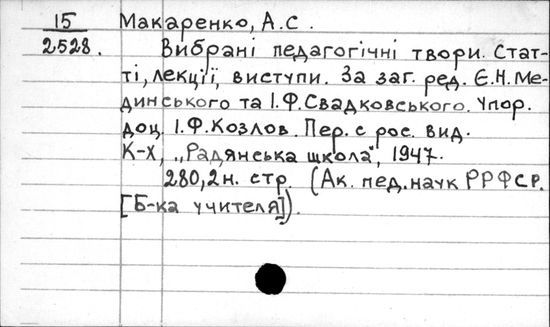 15 Макаренко, А.С.
2528. Вибрані педагогічні твори. Стат-
ті, лекції, виступи. За заг. ред. Є.Н.Ме-
динського та І.Ф.Свадковського. Упор.
доц. І.Ф.Козлов. Пер. с рос. вид.
К-Х, „Радянська школа", 1947.
280,2н. стр. (Ак. пед. наук РРФСР.
[Б-ка учителя]).